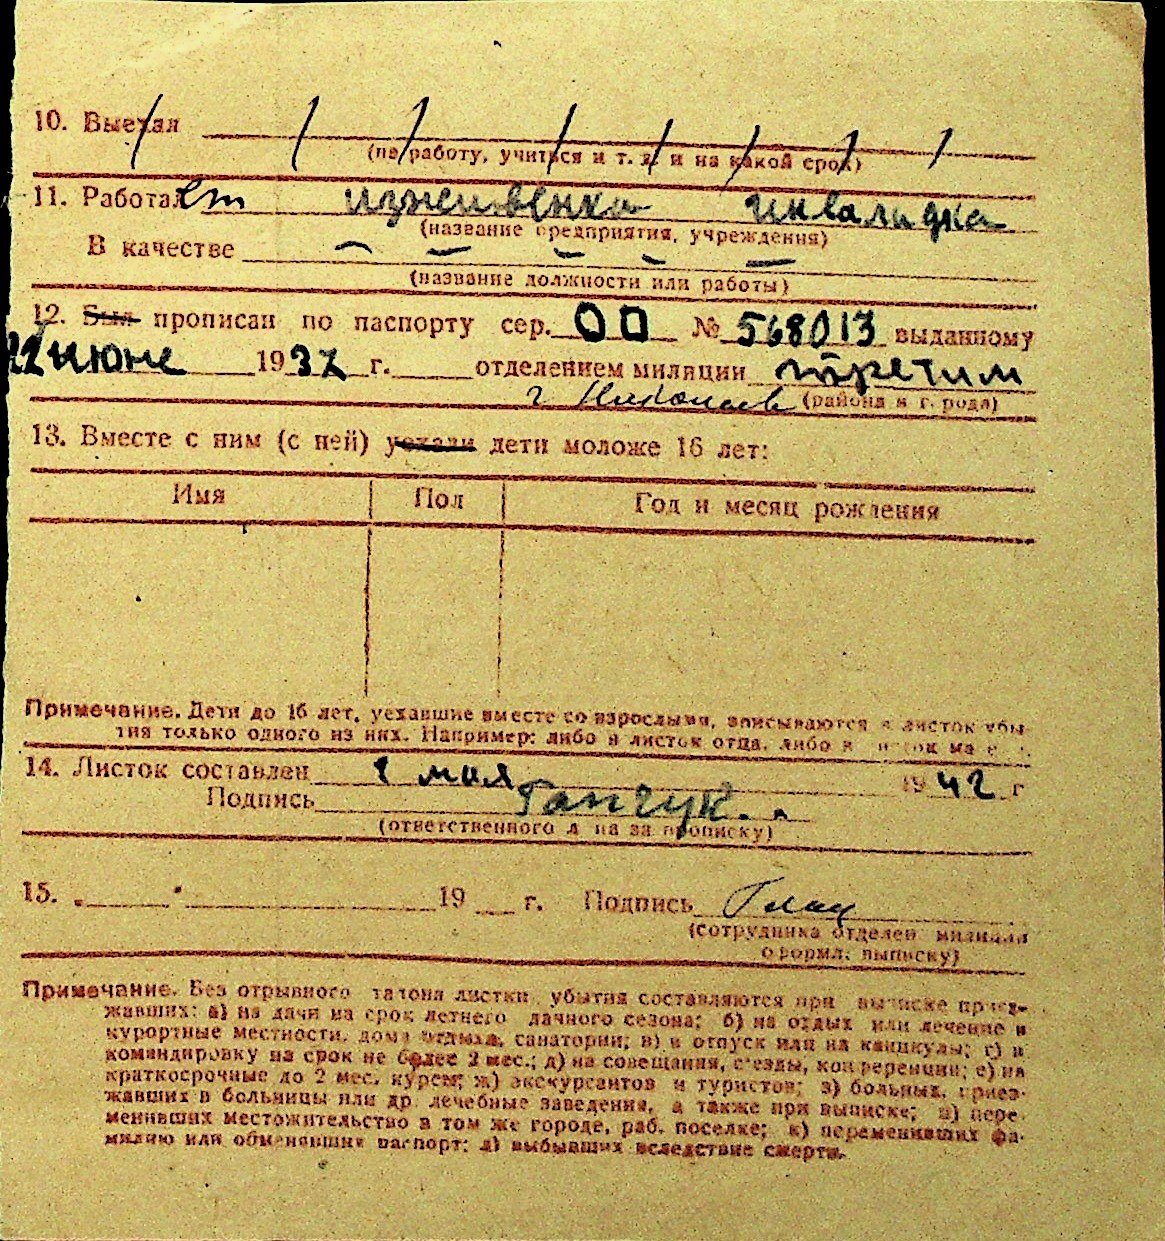 10. Выехал
(на работу, учиться и т. д. и на какой срок)
11. Работает изжевенка инвалидка
(название предприятия, учреждения)
В качестве
(название должности или работы)
12. Был прописан по паспорту сер. ОО № 568013 выданному
22 июне 1937 г. отделением милиции третим
г Николаев (района и города)
13. Вместе с ним (с ней) уехали дети моложе 16 лет:
Имя Пол Год и месяц рождения
Примечание. Дети до 16 лет, уехавшие вместе со взрослыми, вписываются в листок убы-
тия только одного из них. Например: либо в листок отца, либо в листок ма
14. Листок составлен 1 мая 1942 г
Подпись Ганчук.
(ответственного лица за прописку)
15. 19 г. Подпись
(сотрудника отделен милиции
оформл. выписку)
Примечание. Без отрывного талона листки убытия составляются при выписке приез-
жавших: а) на дачи на срок летнего дачного сезона; б) на отдых или лечение в
курортные местности, дома отдыха, санатории; в) в отпуск или на каникулы; г) в
командировку на срок не более 2 мес.; д) на совещания, съезды, конференции; е) на
краткосрочные до 2 мес. курсы; ж) экскурсантов и туристов; з) больных, приез-
жавших в больницы или др. лечебные заведения, а также при выписке; и) пере-
менивших местожительство в том же городе, раб. поселке; к) переменивших фа-
милию или обменявших паспорт; л) выбывших вследствие смерти.